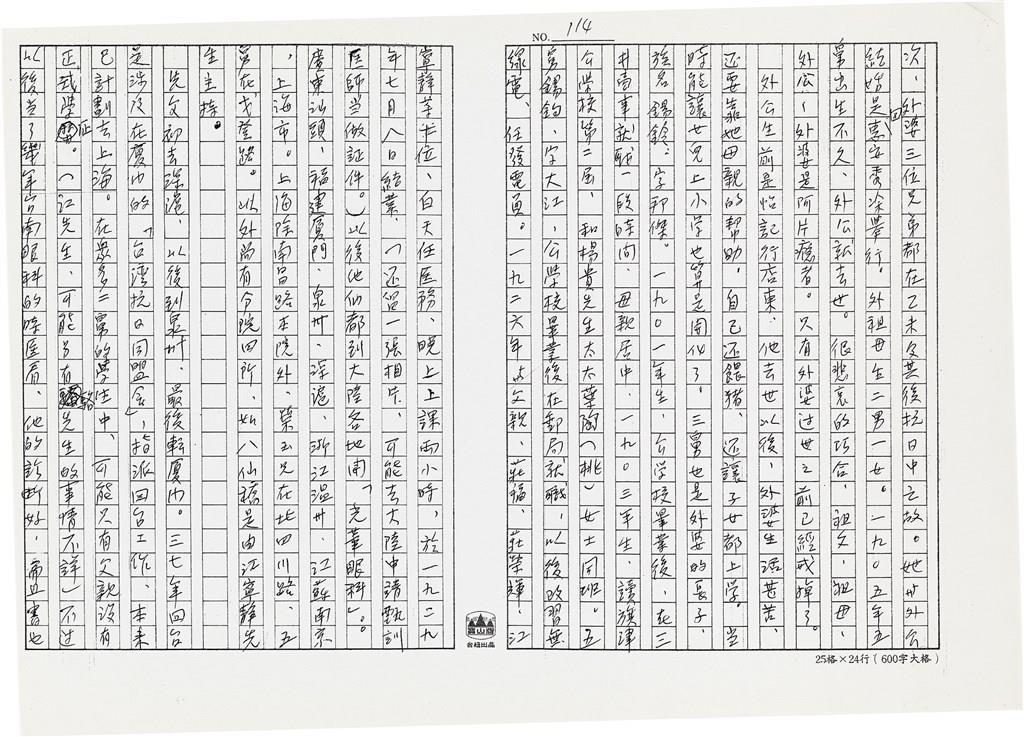 NO. 114
次,外婆三位兄弟都在乙未反其後抗日中亡故。她廿外公
結婚是惠安委求舉行。外祖母生二男一女。一九0五年五
舅出生不久、外公就去世。很悲哀的巧合、祖父、祖母、
外公、外婆是阿片癮者。只有外婆过世之前已經戒掉了。
外公生前是怡記行店東、他去世以後、外婆生活甚苦、
还要靠她母親的帮助。自己还餵猪、还讓子女都上学。当
時能讓女兒上小学也算是開化了。三舅也是外婆的長子、
族名錫鈴、字邦傑。一九0一年生、公学校畢業後、在三
井商事就職一段時间、母親居中、一九0三年生、讀旗津
公学校第二屆、和楊貴先生太太葉陶(桃)女士同班。五
舅錫鈞、字大江、公学校畢業後在郵局就職、以後改習無
線電、任發電員。一九二六年占父親、莊福、莊榮輝、江
章靜等位、白天任医務、晚上上課両小時、於一九二九
年七月八日結業、(还留一張相片、可能去大陸申請執訓
医師当做証件。)以後他们都到大陸各地開「光華眼科」。
廣東汕頭、福建厦門、泉州、漳滬、浙江温州、江蘇南京
,上海市。上海除南昌路本院外、榮玉兄在北四川路、五
舅在戈登路。以外尚有分院四所、如八仙橋是由江寧靜先
生主持。
先父初去漳滬、以後到泉州、最後転厦门。三七年回台
是涉及在厦门的「台湾抗日同盟会」指派回台工作、本来
已計劃去上海。在衆多二男的学生中、可能只有父親没有
正式学歷証。(江先生、可能另有駱先生的事情不詳」不过
以後当了幾年台南眼科的時医有、他的診断好、而且書也
富山牌
台紐出品
25格×24行(600字大格)